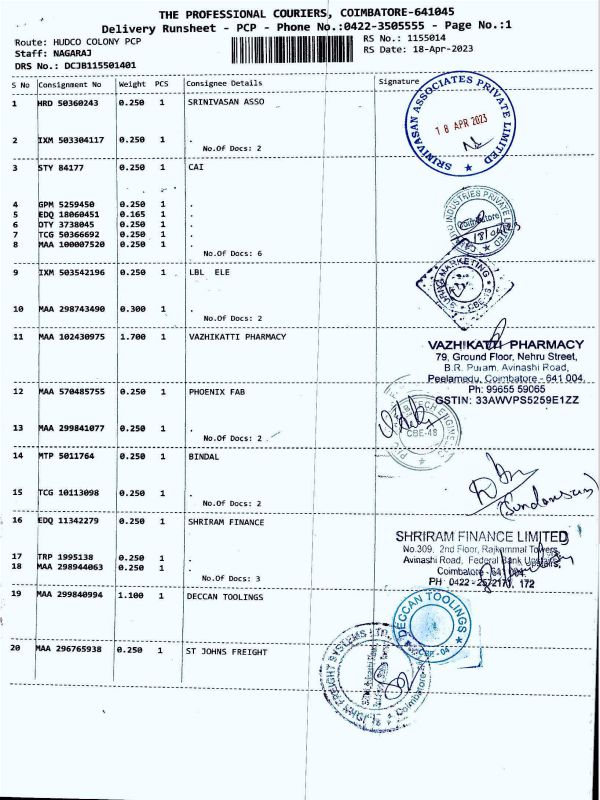 THE PROFESSIONAL COURIERS, COIMBATORE-641045
Delivery Runsheet - PCP - Phone No.:0422-3505555 - Page No.:1
Route: HUDCO COLONY PCP
RS No.: 1155014
Staff: NAGARAJ
RS Date: 18-Apr-2023
DRS No.: DCJB115501401
S No Consignment No Weight PCS Consignee Details Signature
1 HRD 50360243 0.250 1 SRINIVASAN ASSO
SRINIVASAN ASSOCIATES PRIVATE LIMITED
18 APR 2023
2 IXM 503304117 0.250 1 .
No.Of Docs: 2
3 STY 84177 0.250 1 CAI
4 GPM 5259450 0.250 1 .
5 EDQ 18060451 0.165 1 .
6 DTY 3738045 0.250 1 .
7 TCG 50366692 0.250 1 .
8 MAA 100007520 0.250 1 .
No.Of Docs: 6
INDUSTRIES PRIVATE
Coimbatore
9 IXM 503542196 0.250 1 LBL ELE
MARKETING
10 MAA 298743490 0.300 1 .
No.Of Docs: 2
11 MAA 102430975 1.700 1 VAZHIKATTI PHARMACY
VAZHIKATTI PHARMACY
79, Ground Floor, Nehru Street,
B.R. Puram, Avinashi Road,
Peelamedu, Coimbatore - 641 004.
Ph: 99655 59065
GSTIN: 33AWVPS5259E1ZZ
12 MAA 570485755 0.250 1 PHOENIX FAB
13 MAA 299841077 0.250 1 .
No.Of Docs: 2
CBE-48
14 MTP 5011764 0.250 1 BINDAL
15 TCG 10113098 0.250 1 .
No.Of Docs: 2
16 EDQ 11342279 0.250 1 SHRIRAM FINANCE
SHRIRAM FINANCE LIMITED
No.309, 2nd Floor, Rajkammal Towers,
Avinashi Road, Federal Bank Upstairs,
Coimbatore - 641 004.
PH : 0422 - 2572171, 172
17 TRP 1995138 0.250 1 .
18 MAA 298944063 0.250 1 .
No.Of Docs: 3
19 MAA 299840994 1.100 1 DECCAN TOOLINGS
DECCAN TOOLINGS
CBE - 04
20 MAA 296765938 0.250 1 ST JOHNS FREIGHT
FREIGHT SYSTEMS LTD.
Coimbatore